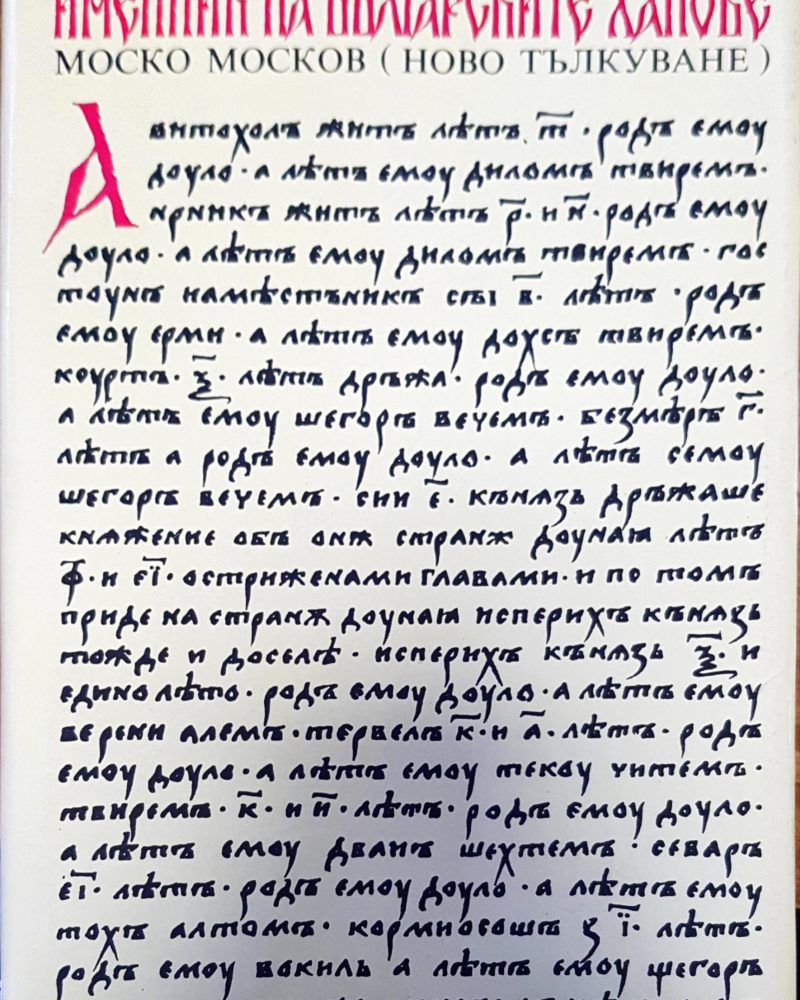 ИМЕННИК НА БЪЛГАРСКИТЕ ХАНОВЕ
МОСКО МОСКОВ ( НОВО ТЪЛКУВАНЕ )
Авитохолъ житъ лѣтъ. т҃ · родъ емоу
доуло · а лѣтъ емоу диломъ твиремъ·
ирникъ житъ лѣтъ р҃· и н҃· родъ емоу
доуло · а лѣтъ емоу диломъ твиремъ · гос
тоунъ намѣстьникъ сꙑ в҃· лѣтъ · родъ
емоу ерми · а лѣтъ емоу дохсъ твиремъ·
коуртъ· ѯ҃· лѣтъ дръжа· родъ емоу доуло·
а лѣтъ емоу шегоръ вечемъ· безмѣръ г҃·
лѣтъ а родъ емоу доуло· а лѣтъ семоу
шегоръ вечемъ· сии е҃· кънѧзь дръжаше
кнѧжение обь онѫ странѫ доунаꙗ лѣтъ
ф҃· и еі҃· остриженами главами· и по томъ
приде на странѫ доунаꙗ исперихъ кънѧзь
тожде и доселѣ· исперихъ кънѧзь ѯ҃· и
едино лѣто· родъ емоу доуло · а лѣтъ емоу
верени алемъ· тервель к҃· и а҃· лѣтъ· родъ
емоу доуло· а лѣтъ емоу текоу читемъ·
твиремъ· к҃· и и҃· лѣтъ· родъ емоу доуло·
а лѣтъ емоу дванъ шехтемъ· севаръ
еі҃· лѣтъ· родъ емоу доуло · а лѣтъ емоу
тохъ алтомъ· кормисошь з і҃· лѣтъ·
родъ емоу вокиль а лѣтъ емоу шегоръ